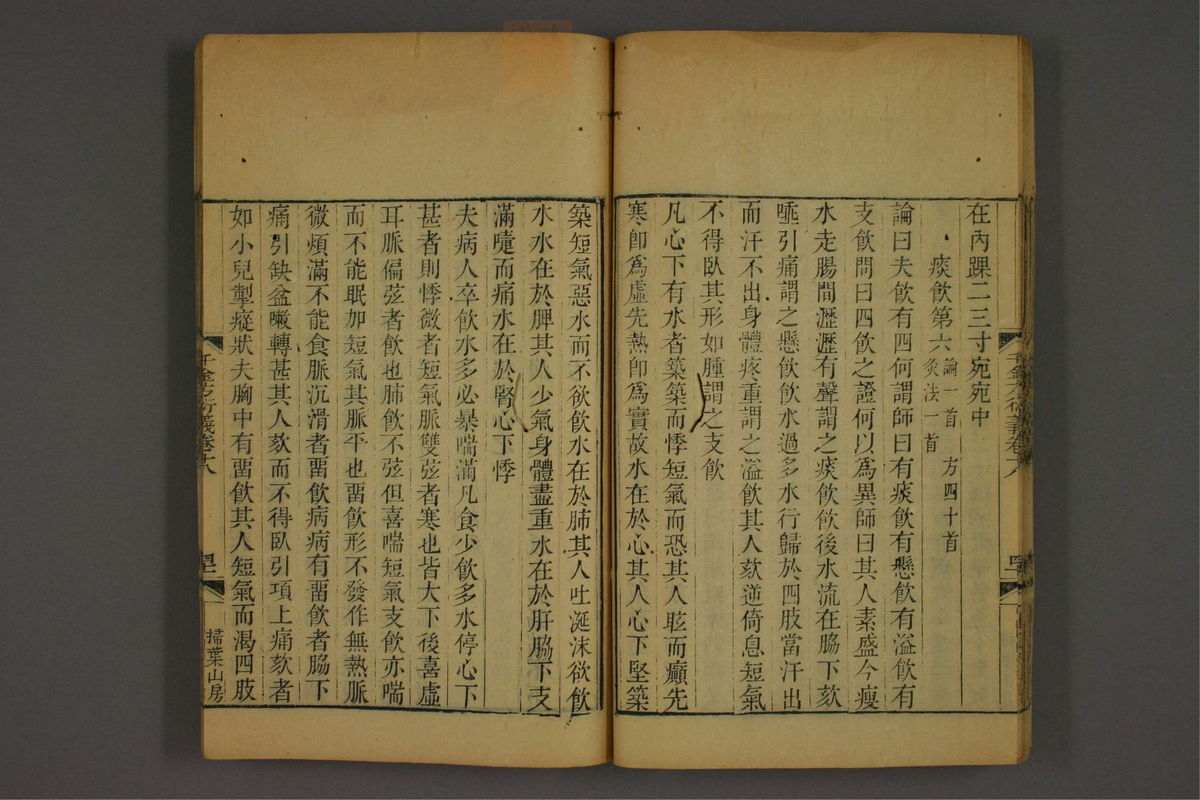 在內踝二三寸宛宛中
痰飲第六 論一首 方四十首
灸法一首
論曰夫飲有四何謂師曰有痰飲有懸飲有溢飲有
支飲問曰四飲之證何以爲異師曰其人素盛今瘦
水走腸間瀝瀝有聲謂之痰飲飲後水流在脇下欬
唾引痛謂之懸飲飲水過多水行歸於四肢當汗出
而汗不出身體疼重謂之溢飲其人欬逆倚息短氣
不得臥其形如腫謂之支飲
凡心下有水者築築而悸短氣而恐其人眩而癲先
寒卽爲虛先熱卽爲實故水在於心其人心下堅築
築短氣惡水而不欲飲水在於肺其人吐涎沫欲飲
水水在於脾其人少氣身體盡重水在於肝脇下支
滿嚏而痛水在於腎心下悸
夫病人卒飲水多必暴喘滿凡食少飲多水停心下
甚者則悸微者短氣脈雙弦者寒也皆大下後喜虛
耳脈偏弦者飲也肺飲不弦但喜喘短氣支飲亦喘
而不能眠加短氣其脈平也畱飲形不發作無熱脈
微煩滿不能食脈沉滑者畱飲病病有畱飲者脇下
痛引缺盆嗽轉甚其人欬而不得臥引項上痛欬者
如小兒掣瘲狀夫胸中有畱飲其人短氣而渴四肢
千金方衍義卷十八
掃葉山房